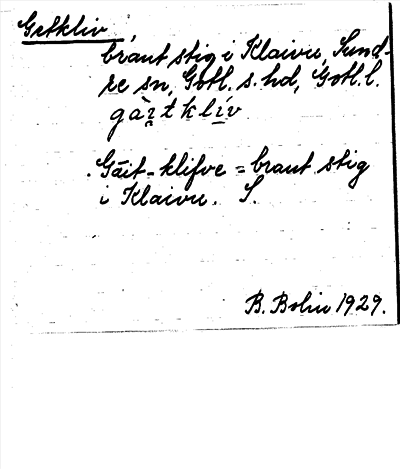 Getkliv
brant stig i Klaivu, Sund-
re sn, Gotl. s. hd, Gotl. l.
gài̯t klív
Gäit-klifve = brant stig
i Klaivu. S.
B. Bolin 1929.